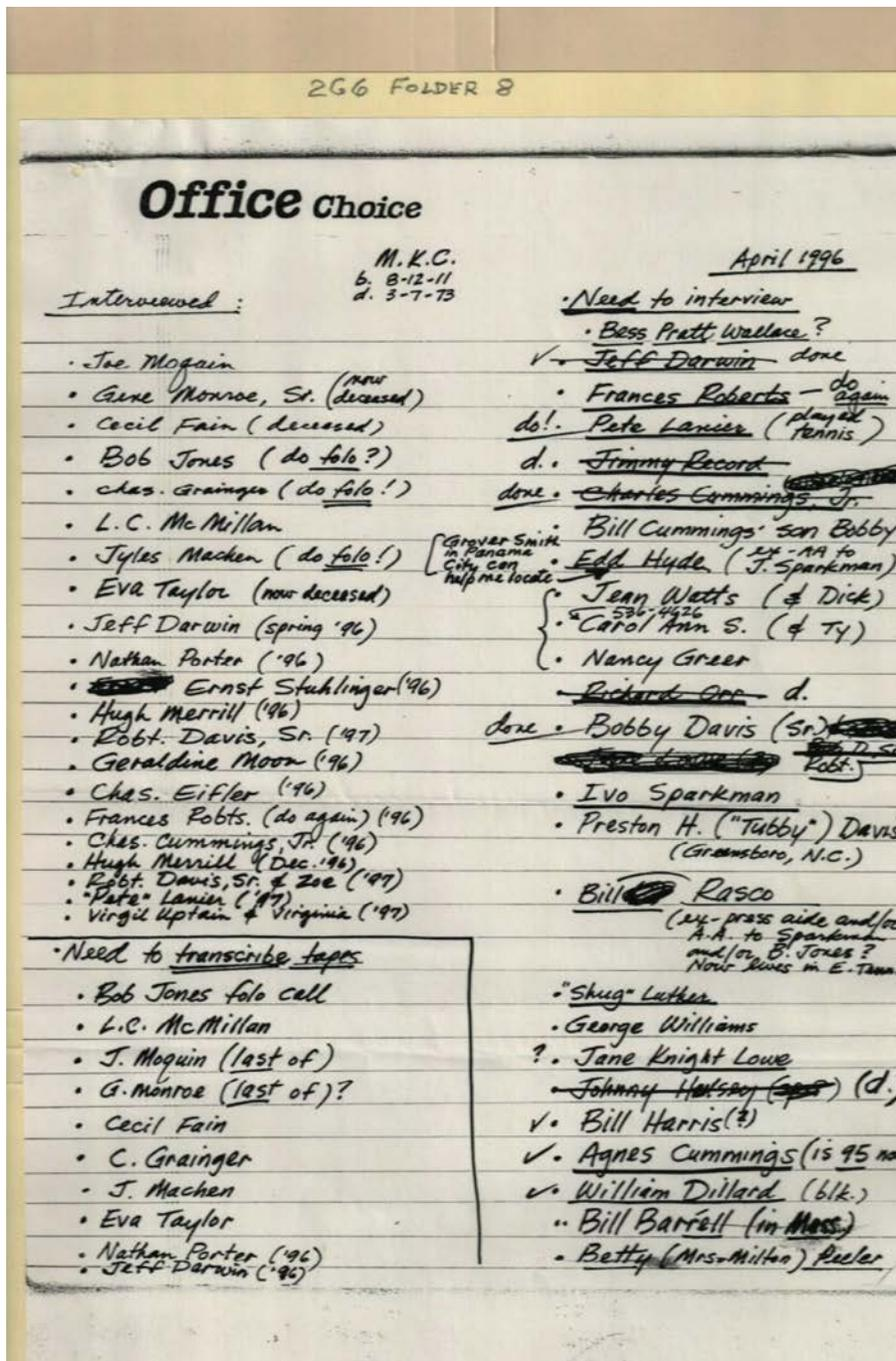 2G6 FOLDER 8
Office Choice
M.K.C.
b. 8-12-11
d. 3-7-73
Interviewed:
• Joe Moquin
• Gene Monroe, Sr. (now deceased)
• Cecil Fain (deceased)
• Bob Jones (do folo?)
• Chas. Grainger (do folo!)
• L.C. McMillan
• Jyles Machen (do folo!)
• Eva Taylor (now deceased)
• Jeff Darwin (spring '96)
• Nathan Porter ('96)
• Ernst Stuhlinger ('96)
• Hugh Merrill ('96)
• Robt. Davis, Sr. ('97)
• Geraldine Moon ('96)
• Chas. Eifler ('96)
• Frances Robts. (do again) ('96)
• Chas. Cummings, Jr. ('96)
• Hugh Merrill (Dec. '96)
• Robt. Davis, Sr. & Zoe ('97)
• "Pete" Lanier ('97)
• Virgil Uptain & Virginia ('97)
• Need to transcribe tapes
• Bob Jones folo call
• L.C. McMillan
• J. Moquin (last of)
• G. Monroe (last of)?
• Cecil Fain
• C. Grainger
- J. Machen
• Eva Taylor
• Nathan Porter ('96)
• Jeff Darwin ('96)
April 1996
• Need to interview
• Bess Pratt Wallace?
✓ • Jeff Darwin done
• Frances Roberts — do again
do! • Pete Lanier (played tennis)
d. • Jimmy Record
done • Charles Cummings, Jr.
• Bill Cummings' son Bobby
[Grover Smith in Panama City can help me locate
• Edd Hyde (ex-AA to J. Sparkman)
• Jean Watts (& Dick)
536-4626
• Carol Ann S. (& Ty)
• Nancy Greer
• Richard Orr d.
done • Bobby Davis (Sr.)
Robt.
• Ivo Sparkman
• Preston H. ("Tubby") Davis
(Greensboro, N.C.)
• Bill Rasco
(ex-press aide and/or
A.A. to Sparkman
and/or B. Jones?
Now lives in E. Tenn.
• "Shug" Luther
• George Williams
? • Jane Knight Lowe
• Johnny (d.)
✓ • Bill Harris (?)
✓ • Agnes Cummings (is 95
✓ • William Dillard (blk.)
• Bill Barrell (in Mass.)
• Betty (Mrs. Milton) Peeler